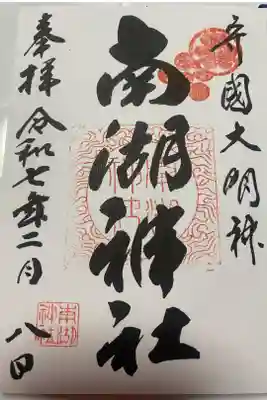 守國大明神
南湖神社
奉拝 令和七年二月八日
南湖神社